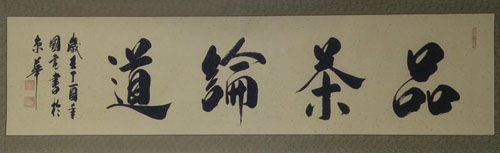 品茶論道
歲在丁酉年
國憲書於
京華